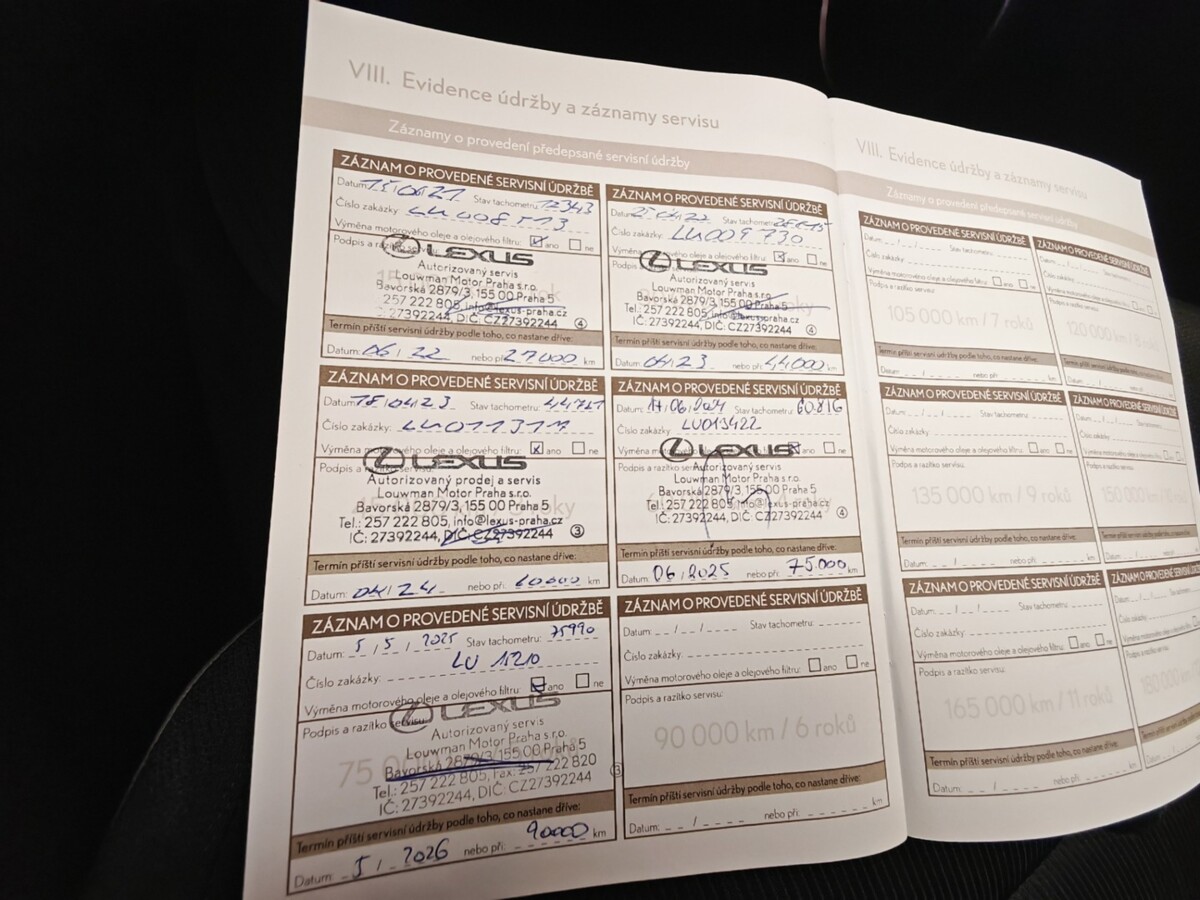 VIII. Evidence údržby a záznamy servisu
Záznamy o provedení předepsané servisní údržby
ZÁZNAM O PROVEDENÉ SERVISNÍ ÚDRŽBĚ
Datum: Stav tachometru: 12343
Číslo zakázky: LU008513
Výměna motorového oleje a olejového filtru: ano ne
Podpis a
LEXUS
Autorizovaný servis
Louwman Motor Praha s.r.o.
Bavorská 2879/3, 155 00 Praha 5
257 222 805, info@lexus-praha.cz
27392244, DIČ: CZ27392244 4
Termín příští servisní údržby podle toho, co nastane dříve:
Datum: 06 / 22 nebo při: 27000 km
ZÁZNAM O PROVEDENÉ SERVISNÍ ÚDRŽBĚ
Datum: Stav tachometru:
Číslo zakázky: LU009730
Výměna oleje a olejového filtru: ano ne
LEXUS
Autorizovaný servis
Louwman Motor Praha s.r.o.
Bavorská 2879/3, 155 00 Praha 5
Tel.: 257 222 805, info@lexus-praha.cz
IČ: 27392244, DIČ: CZ27392244 4
Termín příští servisní údržby podle toho, co nastane dříve:
Datum: 04/23 nebo při: 44000 km
ZÁZNAM O PROVEDENÉ SERVISNÍ ÚDRŽBĚ
Datum: 18/04/23 Stav tachometru:
Číslo zakázky: LU011317
Výměna oleje a olejového filtru: ano ne
Podpis a
LEXUS
Autorizovaný prodej a servis
Louwman Motor Praha s.r.o.
Bavorská 2879/3, 155 00 Praha 5
Tel.: 257 222 805, info@lexus-praha.cz
IČ: 27392244, DIČ: CZ27392244 3
Termín příští servisní údržby podle toho, co nastane dříve:
Datum: 04/24 nebo při: 60000 km
ZÁZNAM O PROVEDENÉ SERVISNÍ ÚDRŽBĚ
Datum: Stav tachometru: 60816
Číslo zakázky: LU013422
Výměna motorového oleje a olejového filtru: ano ne
LEXUS
Podpis a razítko
Autorizovaný servis
Louwman Motor Praha s.r.o.
Bavorská 2879/3, 155 00 Praha 5
Tel.: 257 222 805, info@lexus-praha.cz
IČ: 27392244, DIČ: CZ27392244 4
Termín příští servisní údržby podle toho, co nastane dříve:
Datum: 06/2025 nebo při: 75.000 km
ZÁZNAM O PROVEDENÉ SERVISNÍ ÚDRŽBĚ
Datum: 5/5/2025 Stav tachometru: 75990
Číslo zakázky: LU 1210
Výměna motorového oleje a olejového filtru: ano ne
Podpis a razítko servisu:
LEXUS
Autorizovaný servis
Louwman Motor Praha s.r.o.
Bavorská 2879/3, 155 00 Praha 5
Tel.: 257 222 805, Fax: 257 222 820
IČ: 27392244, DIČ: CZ27392244
Termín příští servisní údržby podle toho, co nastane dříve:
Datum: 5/2026 nebo při: 90000 km
ZÁZNAM O PROVEDENÉ SERVISNÍ ÚDRŽBĚ
Datum: Stav tachometru:
Číslo zakázky:
Výměna motorového oleje a olejového filtru: ano ne
Podpis a razítko servisu:
90 000 km / 6 roků
Termín příští servisní údržby podle toho, co nastane dříve:
Datum: nebo při: km
VIII. Evidence údržby a záznamy servisu
Záznamy o provedení předepsané servisní údržby
ZÁZNAM O PROVEDENÉ SERVISNÍ ÚDRŽBĚ
Datum: Stav tachometru:
Číslo zakázky:
Výměna motorového oleje a olejového filtru: ano ne
Podpis a razítko servisu:
105 000 km / 7 roků
Termín příští servisní údržby podle toho, co nastane dříve:
Datum: nebo při: km
ZÁZNAM O PROVEDENÉ SERVISNÍ ÚDRŽBĚ
Datum: Stav tachometru:
Číslo zakázky:
Výměna motorového oleje a olejového filtru:
Podpis a razítko servisu:
120 000 km / 8
Termín příští servisní údržby podle toho, co nastane
Datum:
ZÁZNAM O PROVEDENÉ SERVISNÍ ÚDRŽBĚ
Datum: Stav tachometru:
Číslo zakázky:
Výměna motorového oleje a olejového filtru: ano ne
Podpis a razítko servisu:
135 000 km / 9 roků
Termín příští servisní údržby podle toho, co nastane dříve:
Datum: nebo při: km
ZÁZNAM O PROVEDENÉ SERVISNÍ
Datum: Stav tachometru:
Číslo zakázky:
Výměna motorového oleje a olejového
Podpis a razítko servisu:
150 000 km
Termín příští servisní údržby podle toho, co
Datum:
ZÁZNAM O PROVEDENÉ SERVISNÍ ÚDRŽBĚ
Datum: Stav tachometru:
Číslo zakázky:
Výměna motorového oleje a olejového filtru: ano ne
Podpis a razítko servisu:
165 000 km / 11 roků
Termín příští servisní údržby podle toho, co nastane dříve:
Datum: nebo při: km
ZÁZNAM O PROVEDENÉ
Datum:
Číslo zakázky:
Výměna motorového oleje
Podpis a razítko servisu:
180 000 km
Termín příští servisní údržby
Datum: